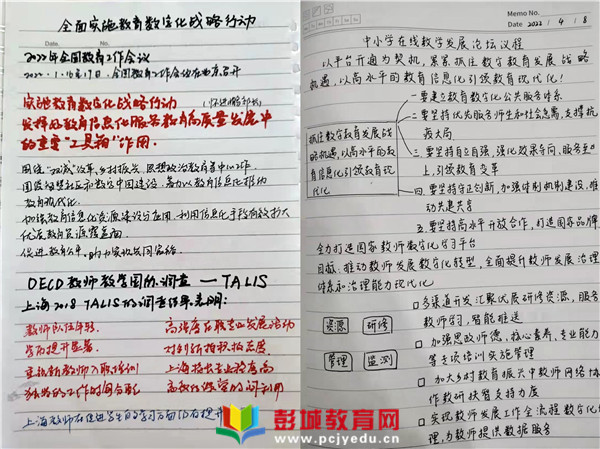 全面实施教育数字化战略行动
Date.
2022年全国教育工作会议
2022.1.16/17日，全国教育工作会议在北京召开
实施教育数字化战略行动
（怀进鹏部长）
发挥好教育信息化服务教育高质量发展中
的重要“工具箱”作用.
围绕“双减”改革、乡村振兴、思想政治教育等中心工作，
国家智慧社区和数字中国建设，着力以教育信息化推动
教育现代化.
加强教育信息化资源建设与应用，利用信息化手段有效扩大
优质教育资源覆盖面.
促进教育公平，助力实现共同富裕.
OECD教师教学国际调查——TALIS
上海2018 TALIS的调查结果表明：
教师队伍年轻.
高满意度
学历提升显著.
对创新抱积极态度.
重视新教师入职培训
上海
独特的工作时间分配
高
上海教师在促进学生自主学习方面仍有提升
Memo No.
Date 2022 / 4 / 8
中小学在线教学发展论坛议程
以平台开通为契机，紧紧抓住数字教育发展战略
机遇，以高水平的教育信息化引领教育现代化！
抓住数字教育发展战
略机遇，以高水平的教
育信息化引领教育现
代化
一要建立教育数字化公共服务体系
二要坚持优先服务师生和社会急需，支撑抗
疫大局
三.要坚持自立自强，强化效果导向，服务至
上，引领教育变革
四.要坚持守正创新，加强体制机制建设，推
动共建共享
五要坚持高水平开放合作，打造国家品牌
全力打造国家教师数字化学习平台
目标：推动教师发展数字化转型，全面提升教师发展治理
体系和治理能力现代化
资源
研修
管理
监测
多渠道开发汇聚优质研修资源，服务
教师学习，智能推送
加强思政师德、核心素养、专业能力
等专项培训实施管理
加大乡村教育振兴中教师网络协
作教研扶智支持力度
实现教师发展工作全流程数字化管
理，为教师提供数据服务
彭城教育网
www.pcjyedu.cn